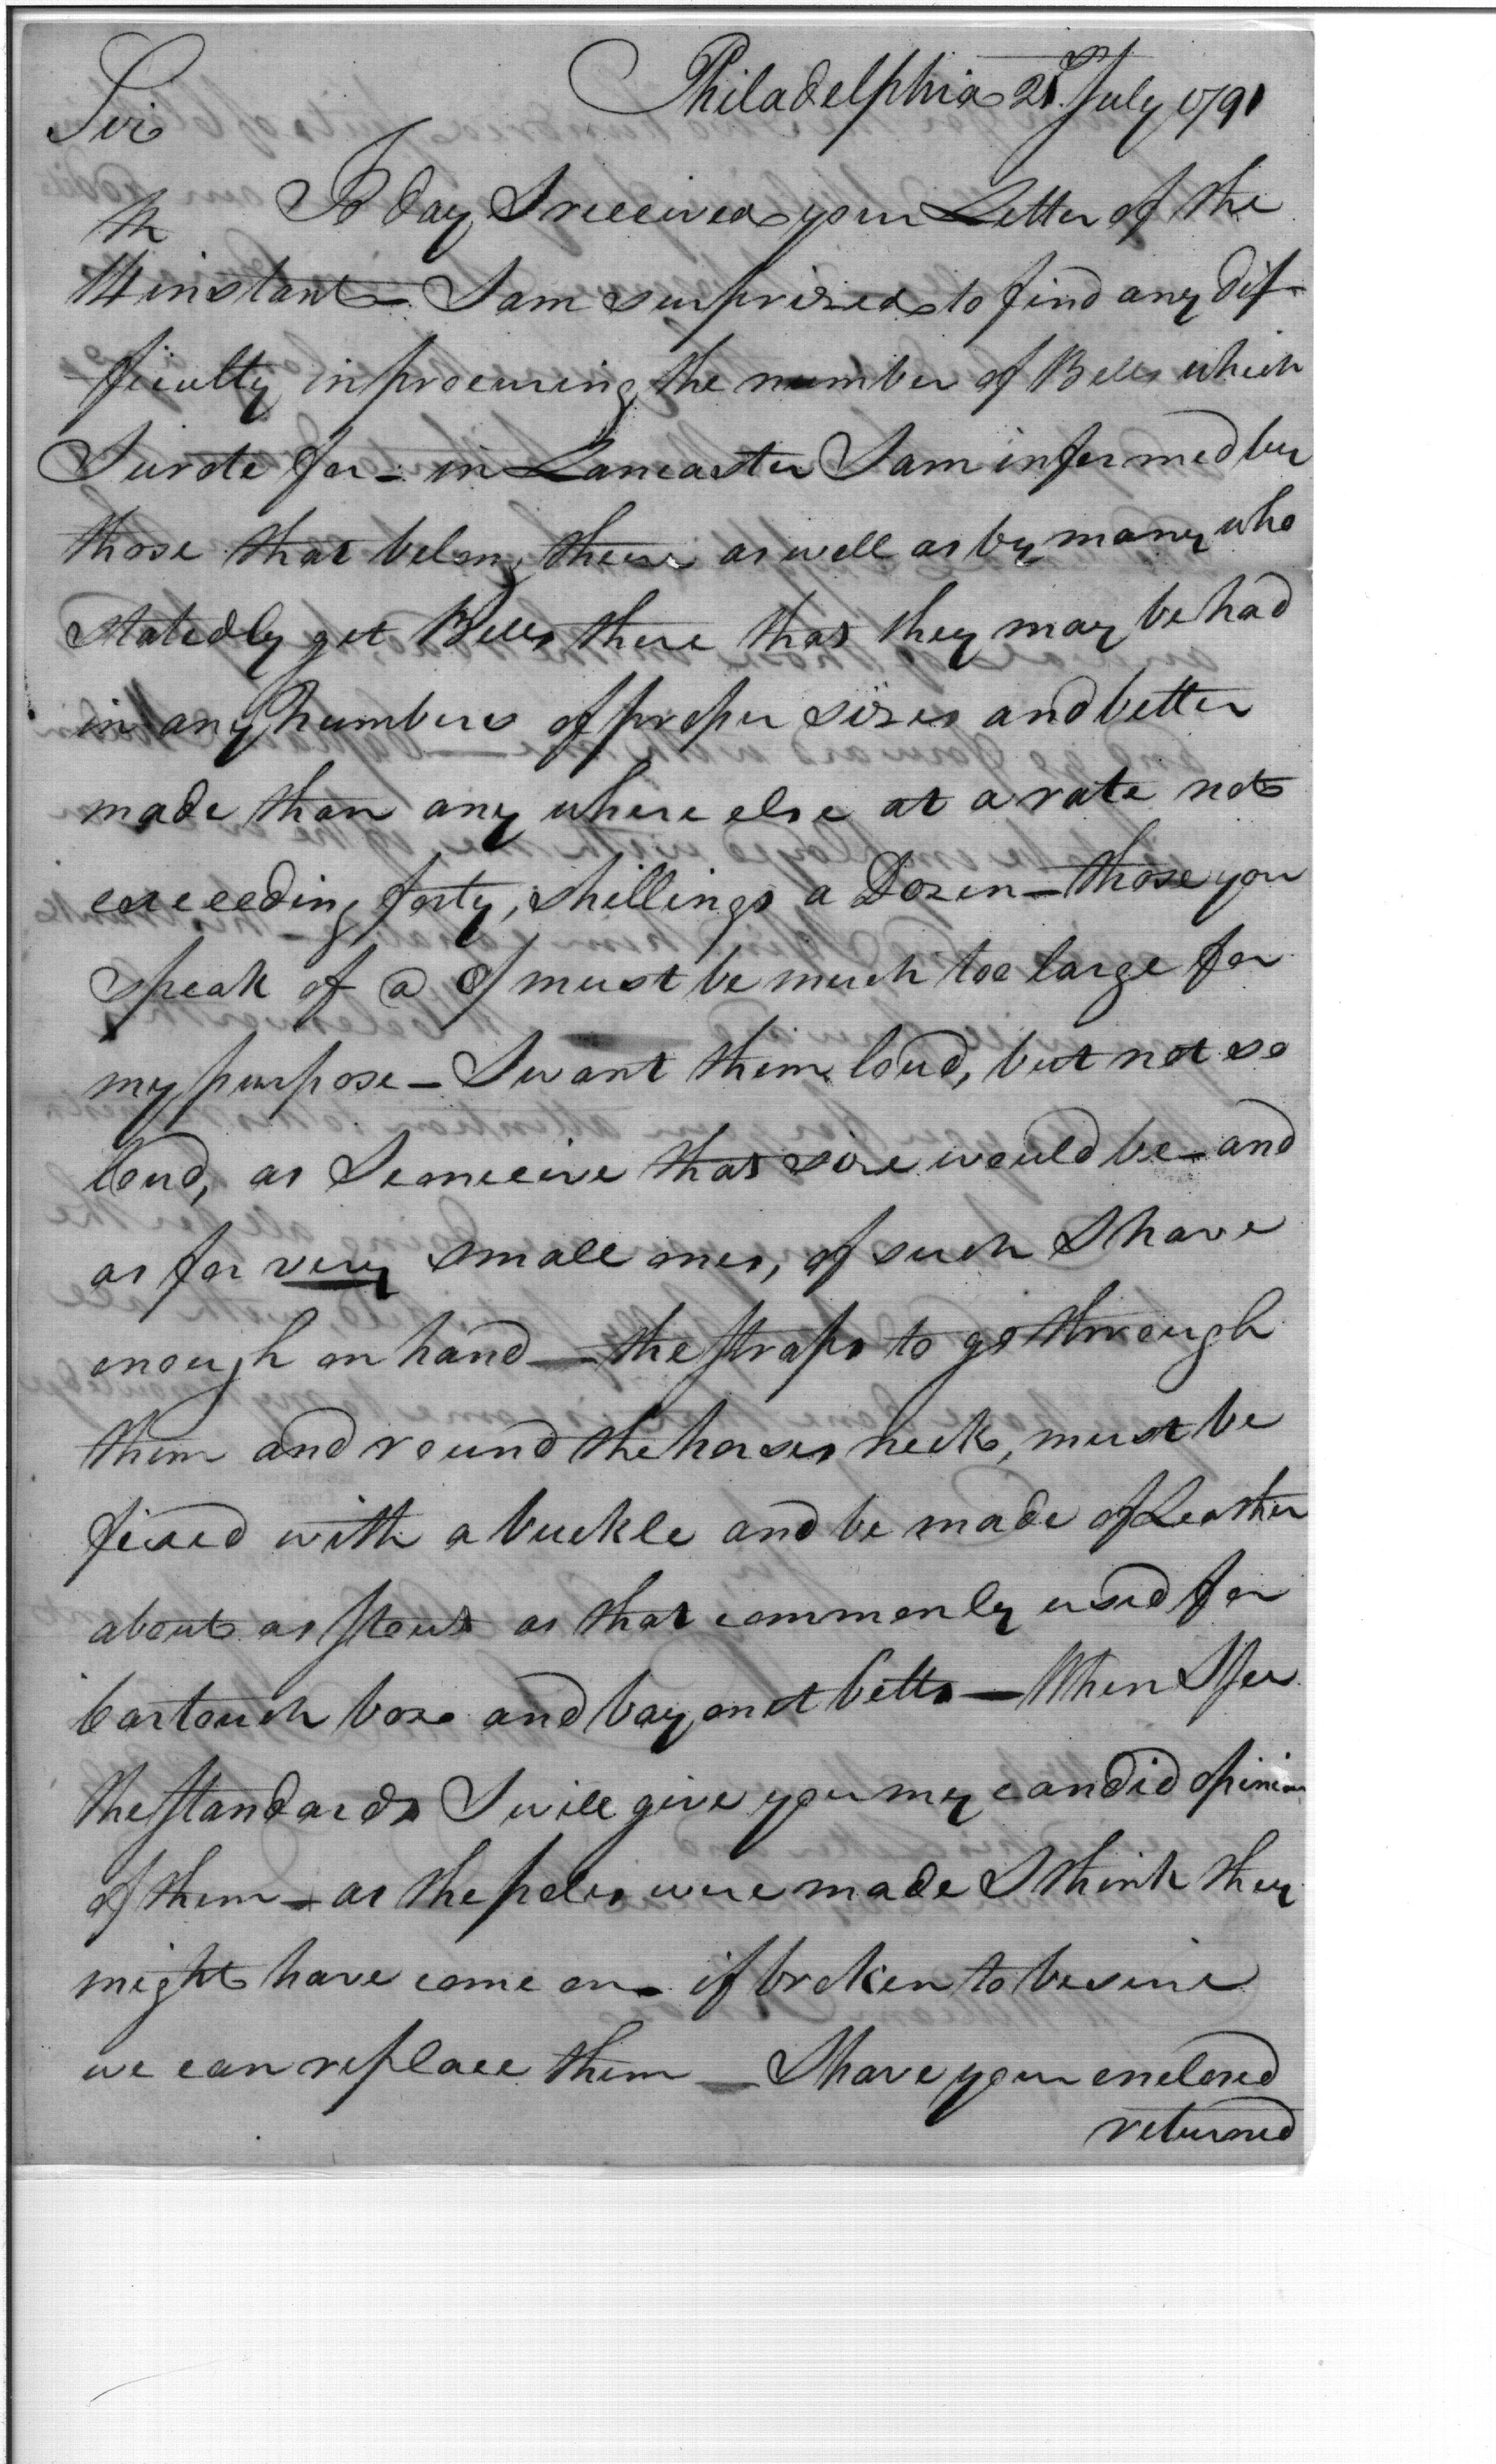 Philadelphia 21st July 1791
Sir
To day I received your Letter of the
14th instant – I am surprized to find any dif-
ficulty in procuring the number of Bells which
I wrote for – in Lancaster I am informed by
those that belong there as well as by many who
statedly get Bells there that they may be had
in any numbers of proper sizes and better
made than any where else at a rate not
exceeding forty shillings a Dozen – those you
speak of @ must be much too large for
my purpose – I want them loud, but not so
loud, as I conceive that size would be – and
as for very small ones, of such I have
enough on hand – the straps to go through
them and round the horses neck, must be
fixed with a buckle and be made of Leather
about as stout as that commonly used for
Cartouch box and bayonet belts – When I see
the standards I will give you my candid opinion
of them – as the poles were made I think they
might have come on – if broken to be sure
we can replace them – I have your enclosed
returned